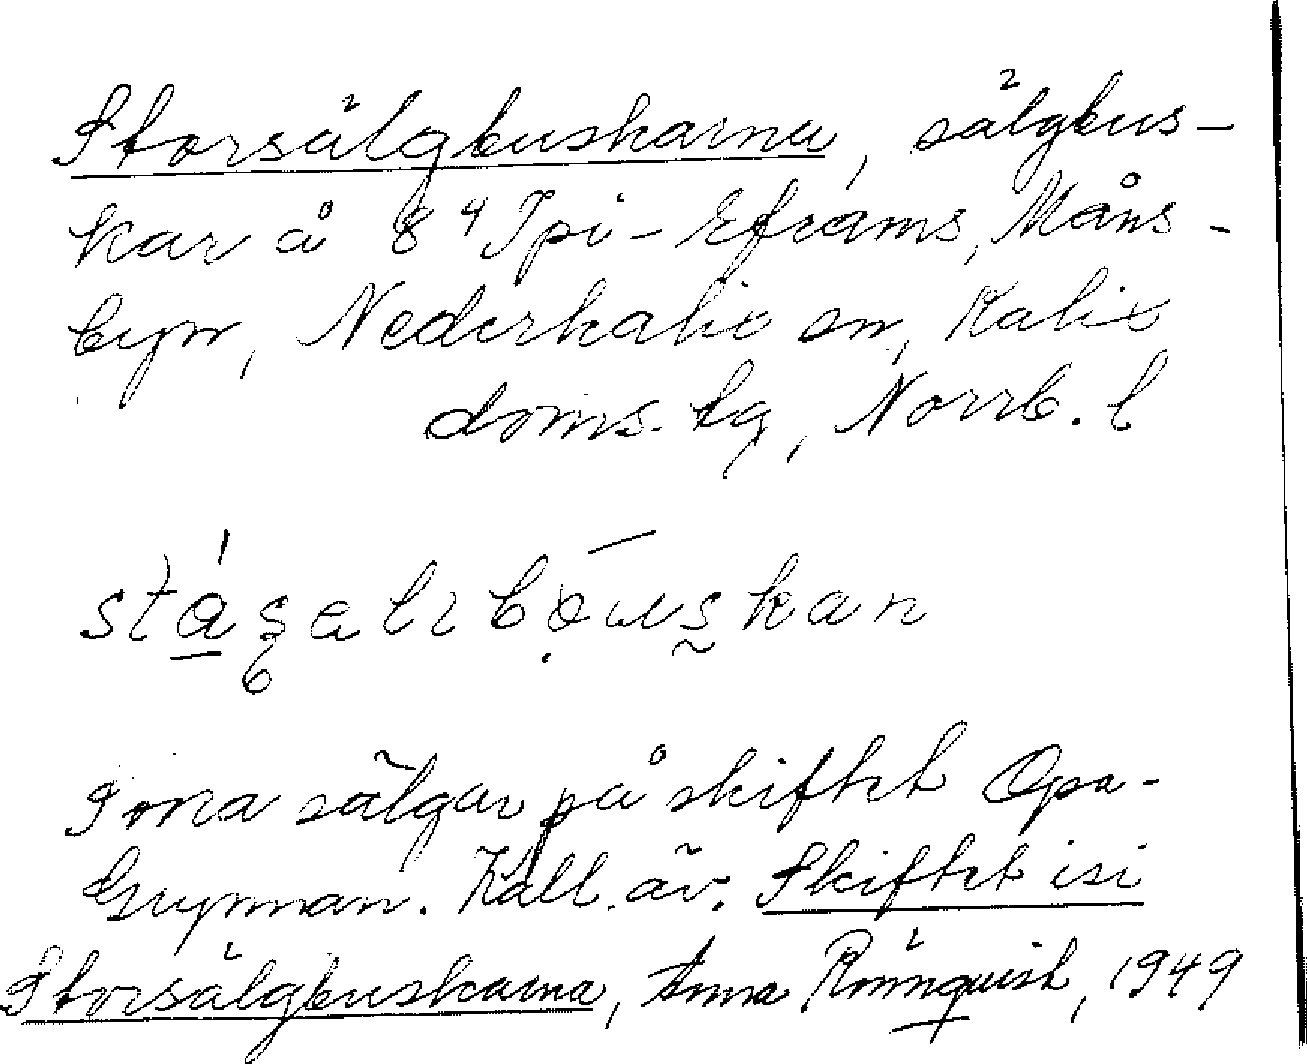 Storsälgbuskarna, sälgbus-
kar å 8⁴ Ipi-Efraims, Måns-
byn, Nederkalix sn, Kalix
doms. tg, Norrb. l
stasalrbouskan
Stora sälgar på skiftet Opa-
Grynnan. Kall. äv. Skiftet isi
Storsälgbuskarna, Anna Rönnquist, 1949